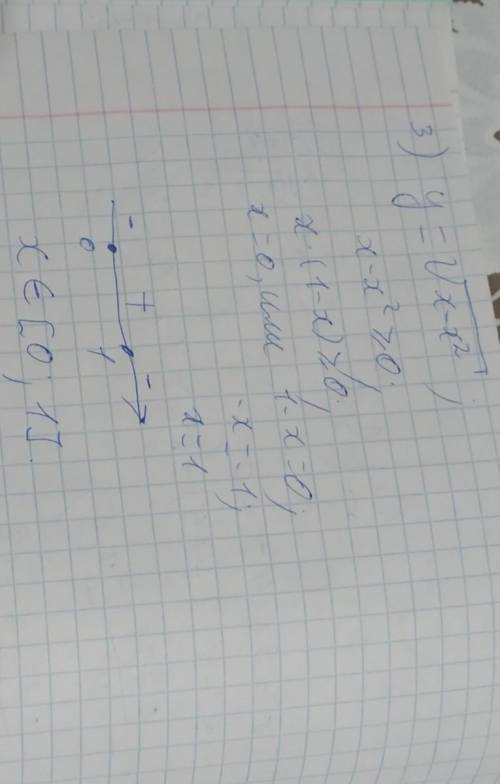 3) y = √x-x²;
x-x² ≥ 0;
x·(1-x) ≥ 0;
x=0, или 1-x=0;
-x=-1;
x=1
- + -
0 1
x ∈ [0; 1].